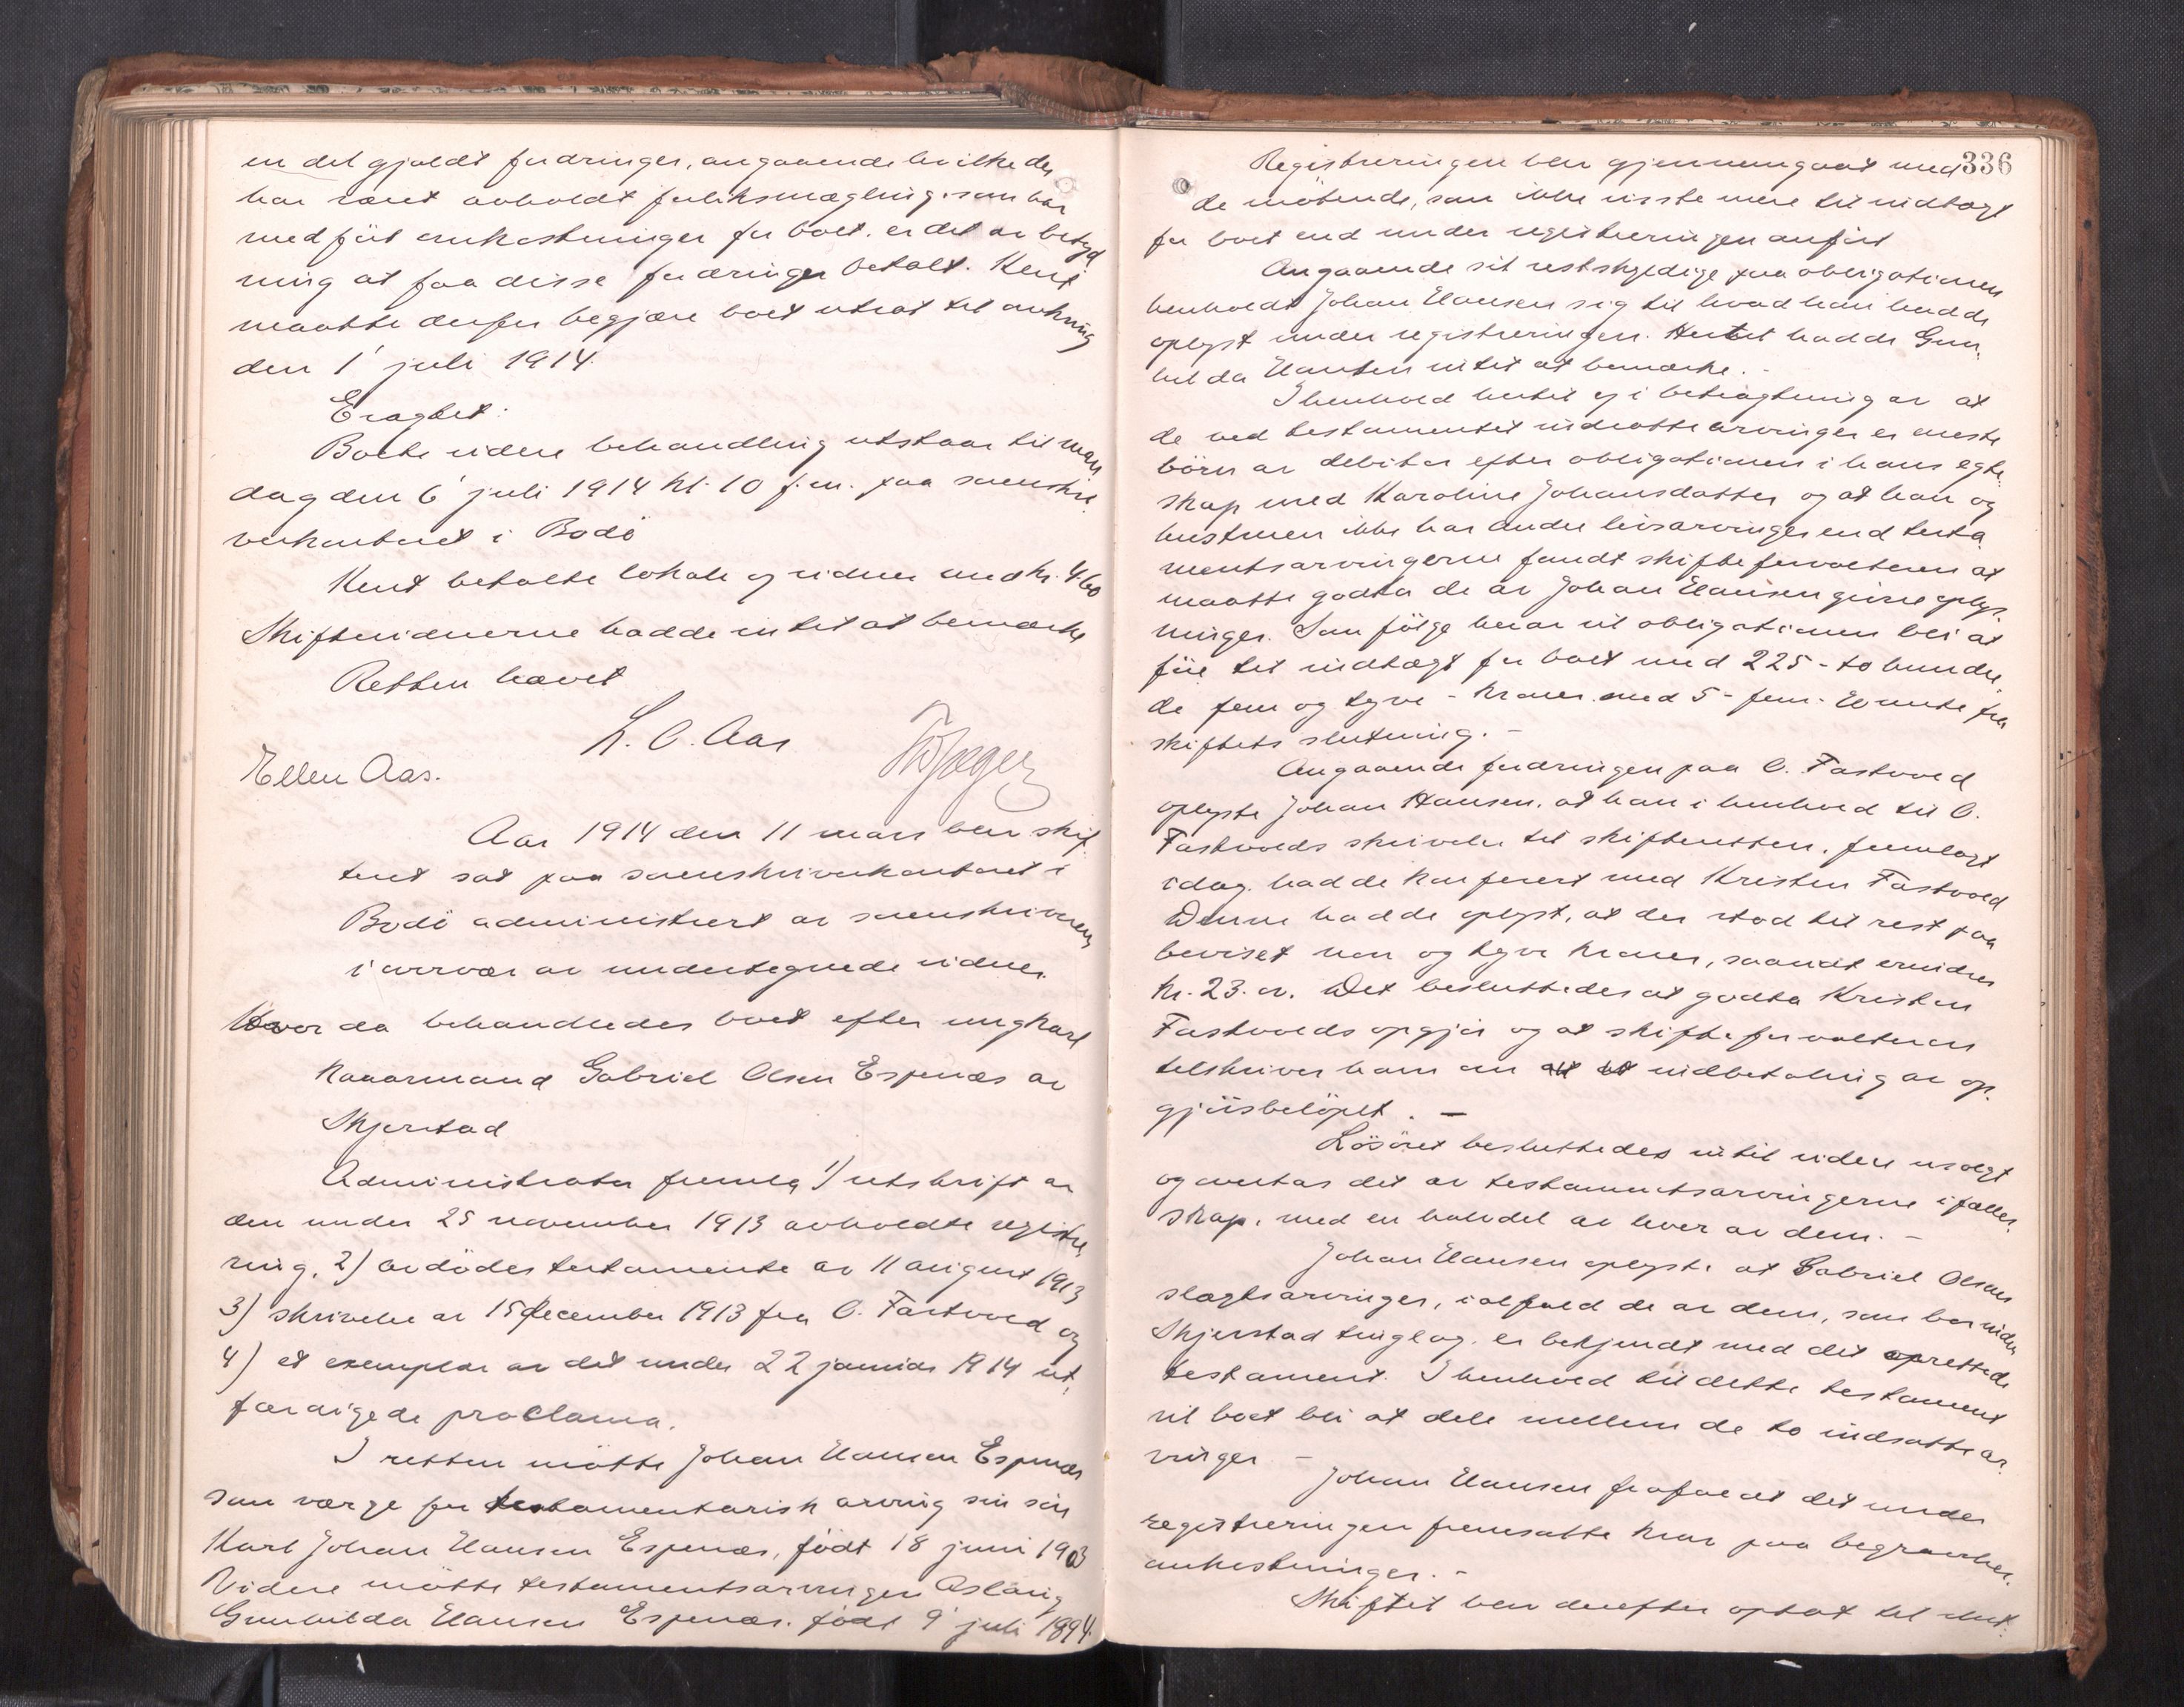 en del gjældt fordringer, angaaende hvilke der
har været avholdt forliksmægling, som har
medført omkostninger for boet. er det av betyd
ning at faa disse fordringer betalt. Kent
maatte derfor begjære boet utsat til omkring
den 1' juli 1914.
Eragtet:
Boets videre behandling utstaar til man
dag den 6' juli 1914 kl. 10 f.m. paa sorenskri
verkontoret i Bodö
Kent betalte lokale og vidner med kr. 4.60
Skiftevidnerne hadde intet at bemærke
Retten hævet
L. O. Aas
Ellen Aas.
Aar 1914 den 11 mars blev skif
teret sat paa sorenskriverkontoret i
Bodö administrert av sorenskriveren
i overvær av undertegnede vidner.
Hvor da behandledes boet efter ungkarl
kaarmand Gabriel Olsen Espenæs av
Skjerstad
Administrator fremla 1) utskrift av
den under 25 november 1913 avholdte registre
ring, 2) avdödes testamente av 11 august 1913
3) skrivelse av 15 december 1913 fra O. Fastvold og
4) et exemplar av det under 22 januar 1914 ut
færdigede proclama.
I retten mötte Johan Hansen Espenæs
som værge for testamentarisk arving sin sön
Karl Johan Hansen Espenæs, födt 18 juni 1903
Videre mötte testamentsarvingen Aslaug
Gunhilda Hansen Espenæs. födt 9' juli 1894.
336
Registreringen blev gjennemgaat med
de mötende, som ikke visste mere til indtægt
for boet end under registreringen anfört
Angaaende sit restskyldige paa obligationen
henholdt Johan Hansen sig til hvad han hadde
oplyst under registreringen. Hertil hadde Gun
hilda Hansen intet at bemærke. -
I henhold hertil og i betragtning av at
de ved testamentet indsatte arvinger er eneste
börn av debitor efter obligationen i hans egte
skap med Karoline Johansdatter og at han og
hustruen ikke har andre livsarvinger end testa
mentsarvingerne fandt skifteforvalteren at
maatte godta de av Johan Hansen givne oplys
ninger. Som fölge herav vil obligationen bli at
före til indtægt for boet med 225 - to hundre
de fem og tyve - kroner med 5 - fem - % rente fra
skiftets slutning. -
Angaaende fordringen paa O. Fastvold
oplyste Johan Hansen, at han i henhold til O.
Fastvolds skrivelse til skifteretten, fremlagt
idag, hadde konferert med Kristen Fastvold
Denne hadde oplyst, at der stod til rest paa
beviset og tyve kroner,
kr. 23. Det besluttedes at godta Kristen
Fastvolds opgjör og at skifteforvalteren
tilskriver ham om indbetaling av op
gjörsbelöpet. -
Lösöret besluttedes intil videre usolgt
og overtas det av testamentsarvingerne i fælles
skap, med en halvdel av hver av dem. -
Johan Hansen oplyste at Gabriel Olsens
slagtsarvinger, ialfald de av dem, som bor inden
Skjerstad tinglag, er bekjendt med det oprettede
testament. I henhold til dette testament
vil boet bli at dele mellem de to indsatte ar
vinger -
Johan Hansen frafaldt det under
registreringen fremsatte krav paa begravelses
omkostninger. -
Skiftet blev derefter optat til slut